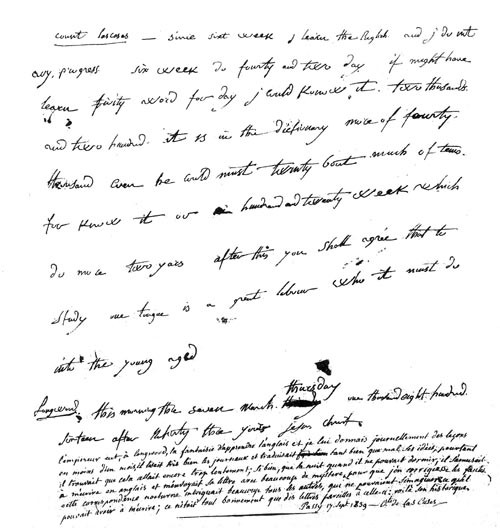 count lascases — since sixt week j learn the English and j do not
any progress six week do fourty and two day if might have
learn fivity word for day j could know it two thousands
and two hundred. it is in the dictionary more of fourty
thousand even he could must twenty bout much of tems.
for know it or hundred and twenty week which
do more two years after this you shall agrée that to
study one tongue is a great labour who it must do
into the young aged
Longwood. this morning the seven march. thursday one thousand eight hundred.
sixteen after nativity the yors jesus christ.
l'empereur eut, à longwood, la fantaisie d'apprendre l'anglais et je lui donnais journellement des leçons
en moins d'un mois il lisait très bien les journaux et traduisait tant bien que mal ses idées, pourtant
il trouvait que cela allait encore trop lentement; si bien, que la nuit quand il ne pouvait dormir, il s'amusait
à m'écrire en anglais et m'envoyait sa lettre avec beaucoup de mystère, pour que j'en corrigeasse les fautes.
cette correspondance nocturne intriguait beaucoup tous les autres, qui ne pouvaient s'imaginer ce qu'il
pouvait avoir à m'écrire; ce n'était tout bonnement que des lettres pareilles à celle-ci; voilà son historique.
Passy 17 sept. 1839 — Cte de Las Cases